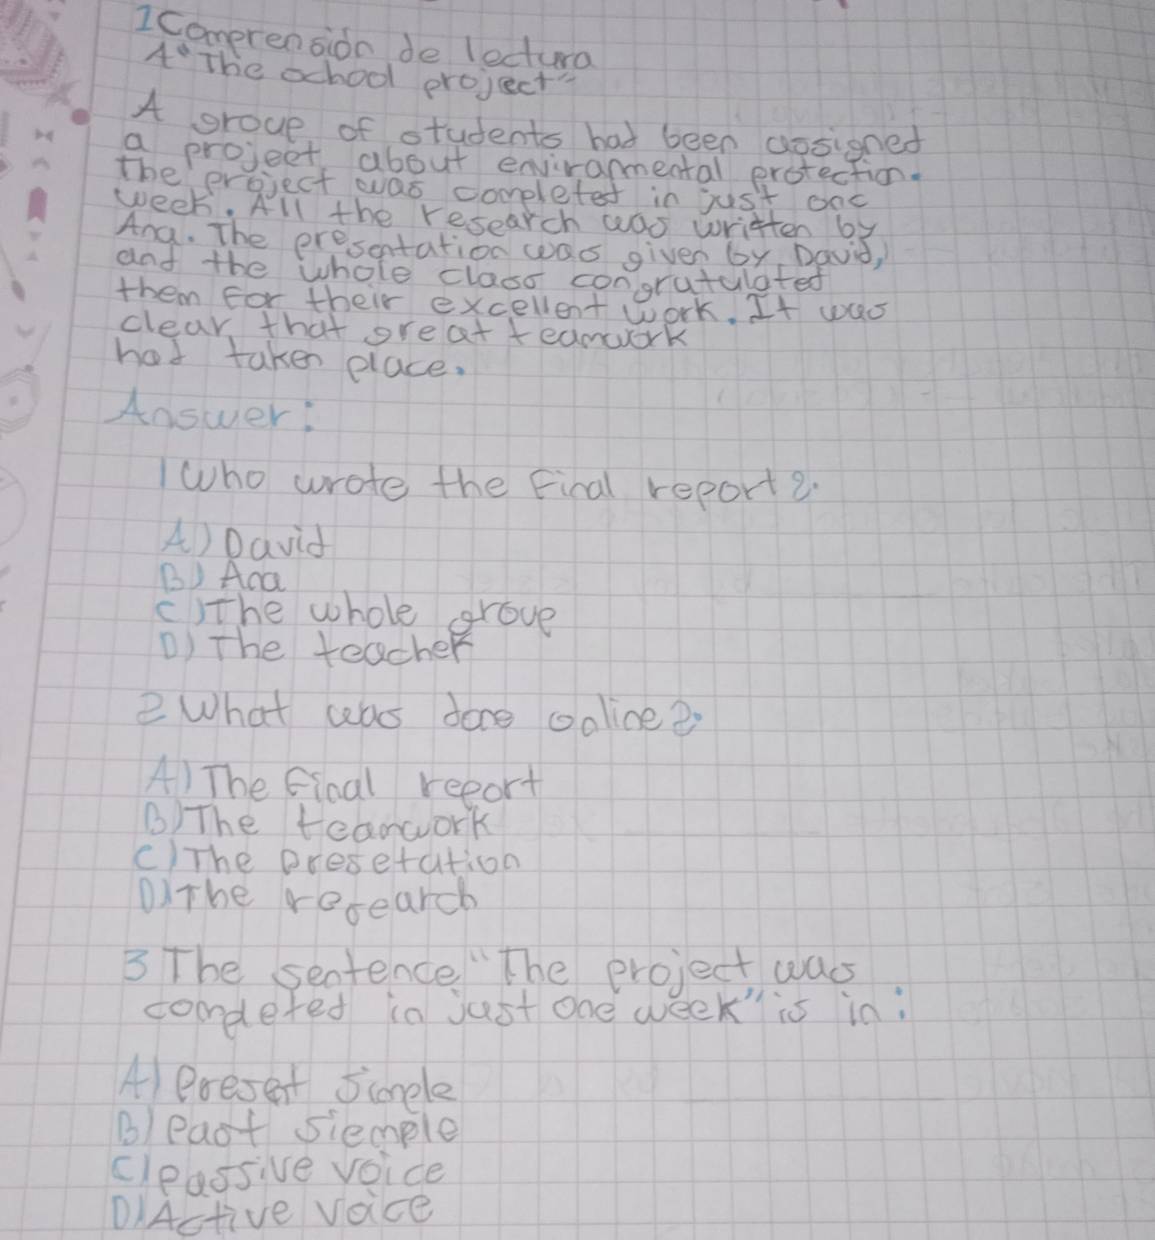 1 Comprensión de lectura
A "The school project"
A group of students had been assigned
a project about enviramental protection.
The project was completed in just one
week. All the research was written by
Ana. The presentation was given by David,
and the whole class congratulated
them for their excellent work. It was
clear that great teamwork
had taken place.
Answer:
1 Who wrote the final report?
A) David
B) Ana
C) The whole group
D) The teacher
2 What was done online?
A) The final report
B) The teamwork
C) The presetation
D) The research
3 The sentence "The project was
completed in just one week" is in:
A) Preset simple
B) Past siemple
C) Passive voice
D) Active voice